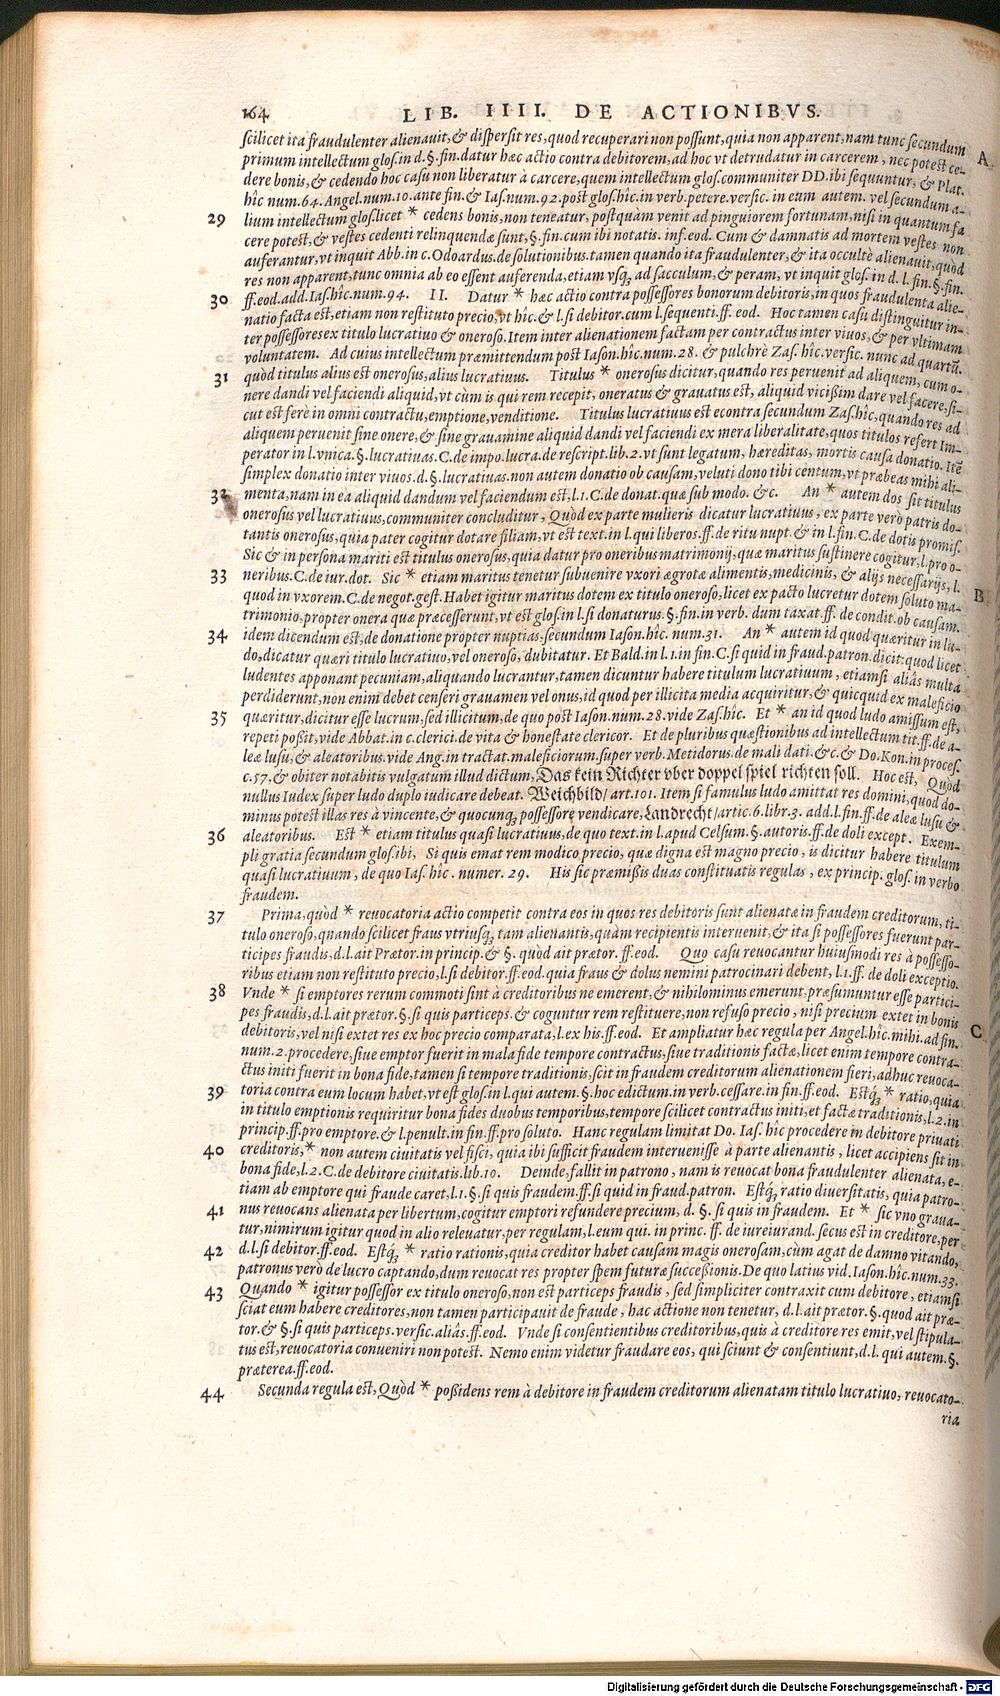 164 LIB. IIII. DE ACTIONIBVS.
scilicet ita fraudulenter alienauit,& dispersit res,quod recuperari non possunt,quia non apparent,nam tunc secundum
A
primum intellectum glos.in d.§.fin.datur hæc actio contra debitorem,ad hoc vt detrudatur in carcerem, nec potest ce-
dere bonis,& cedendo hoc casu non liberatur à carcere,quem intellectum glos.communiter DD.ibi sequuntur, & Plat.
hîc num.64.Angel.num.10.ante fin.& Ias.num.92.post glos.hîc.in verb.petere.versic. in eum autem. vel secundum a-
29 lium intellectum glos.licet * cedens bonis,non teneatur, postquàm venit ad pinguiorem fortunam,nisi in quantum fa
cere potest,& vestes cedenti relinquendæ sunt,§.fin.cum ibi notatis. inf.eod. Cum & damnatis ad mortem vestes non
auferantur,vt inquit Abb.in c.Odoardus.de solutionibus.tamen quando ita fraudulenter,& ita occultè alienauit,quòd
res non apparent,tunc omnia ab eo essent auferenda,etiam vsq; ad sacculum,& peram, vt inquit glos.in d. l. fin.§.fin.
30 ff.eod.add.Ias.hîc.num.94. II. Datur * hæc actio contra possessores bonorum debitoris,in quos fraudulenta alie-
natio facta est,etiam non restituto precio,vt hîc.& l.si debitor.cum l.sequenti.ff. eod. Hoc tamen casu distinguitur in-
ter possessores ex titulo lucratiuo & oneroso.Item inter alienationem factam per contractus inter viuos,& per vltimam
voluntatem. Ad cuius intellectum præmittendum post Iason.hîc.num.28. & pulchrè Zas. hîc.versic. nunc ad quartũ.
31 quòd titulus alius est onerosus,alius lucratiuus. Titulus * onerosus dicitur,quando res peruenit ad aliquem, cum o-
nere dandi vel faciendi aliquid,vt cùm is qui rem recepit, oneratus & grauatus est, aliquid vicißim dare vel facere,si-
cut est ferè in omni contractu,emptione,venditione. Titulus lucratiuus est econtra secundum Zas.hîc,quando res ad
aliquem peruenit sine onere,& sine grauamine aliquid dandi vel faciendi ex mera liberalitate,quos titulos refert Im-
perator in l.vnica.§.lucratiuas.C.de impo.lucra.de rescript.lib.2.vt sunt legatum, hæreditas, mortis causa donatio. Itẽ
simplex donatio inter viuos.d.§.lucratiuas.non autem donatio ob causam,veluti dono tibi centum,vt præbeas mihi ali-
32 menta,nam in ea aliquid dandum vel faciendum est,l.1.C.de donat.quæ sub modo. &c. An * autem dos sit titulus
onerosus vel lucratiuus,communiter concluditur, Quòd ex parte mulieris dicatur lucratiuus, ex parte verò patris do-
tantis onerosus,quia pater cogitur dotare filiam,vt est text.in l.qui liberos.ff.de ritu nupt.& in l.fin.C.de dotis promis.
Sic & in persona mariti est titulus onerosus,quia datur pro oneribus matrimonij,quæ maritus sustinere cogitur,l.pro o-
33 neribus.C.de iur.dot. Sic * etiam maritus tenetur subuenire vxori ægrotæ alimentis,medicinis, & alijs necessarijs, l.
B
quod in vxorem.C.de negot.gest.Habet igitur maritus dotem ex titulo oneroso,licet ex pacto lucretur dotem soluto ma-
trimonio,propter onera quæ præcesserunt,vt est glos.in l.si donaturus.§.fin.in verb. dum taxat.ff. de condit.ob causam.
34 idem dicendum est,de donatione propter nuptias.secundum Iason.hîc. num.31. An * autem id quod quæritur in lu-
do,dicatur quæri titulo lucratiuo,vel oneroso, dubitatur. Et Bald.in l.1.in fin.C.si quid in fraud.patron.dicit:quod licet
ludentes apponant pecuniam,aliquando lucrantur,tamen dicuntur habere titulum lucratiuum, etiamsi aliâs multa
perdiderunt,non enim debet censeri grauamen vel onus,id quod per illicita media acquiritur,& quicquid ex maleficio
35 quæritur,dicitur esse lucrum,sed illicitum,de quo post Iason.num.28.vide Zas.hîc. Et * an id quod ludo amissum est,
repeti poßit,vide Abbat.in c.clerici.de vita & honestate clericor. Et de pluribus quæstionibus ad intellectum tit.ff.de a-
leæ lusu,& aleatoribus.vide Ang.in tractat.maleficiorum.super verb.Metidorus.de mali dati.&c.& Do.Kon.in proces.
c.57.& obiter notabitis vulgatum illud dictum,Das kein Richter vber doppel spiel richten soll. Hoc est, Quòd
nullus Iudex super ludo duplo iudicare debeat. Weichbild/ art.101. Item si famulus ludo amittat res domini,quod do-
minus potest illas res à vincente,& quocunq; possessore vendicare,Landrecht/artic.6.libr.3. add.l.fin.ff.de aleæ lusu &
36 aleatoribus. Est * etiam titulus quasi lucratiuus,de quo text.in l.apud Celsum.§.autoris.ff.de doli except. Exem-
pli gratia secundum glos.ibi, Si quis emat rem modico precio, quæ digna est magno precio, is dicitur habere titulum
quasi lucratiuum, de quo Ias.hîc. numer. 29. His sic præmißis duas constituatis regulas, ex princip.glos.in verbo
fraudem.
37 Prima,quòd * reuocatoria actio competit contra eos in quos res debitoris sunt alienatæ in fraudem creditorum, ti-
tulo oneroso,quando scilicet fraus vtriusq; tam alienantis,quàm recipientis interuenit,& ita si possessores fuerunt par-
ticipes fraudis,d.l.ait Prætor.in princip.& §. quòd ait prætor. ff.eod. Quo casu reuocantur huiusmodi res à possesso-
ribus etiam non restituto precio,l.si debitor.ff.eod.quia fraus & dolus nemini patrocinari debent, l.1.ff. de doli exceptio.
38 Vnde * si emptores rerum commoti sint à creditoribus ne emerent,& nihilominus emerunt,præsumuntur esse partici-
pes fraudis,d.l.ait prætor.§.si quis particeps.& coguntur rem restituere,non refuso precio, nisi precium extet in bonis
C
debitoris,vel nisi extet res ex hoc precio comparata,l.ex his.ff.eod. Et ampliatur hæc regula per Angel.hîc.mihi.ad fin.
num.2.procedere,siue emptor fuerit in mala fide tempore contractus,siue traditionis factæ,licet enim tempore contra-
ctus initi fuerit in bona fide,tamen si tempore traditionis,scit in fraudem creditorum alienationem fieri,adhuc reuoca-
39 toria contra eum locum habet,vt est glos.in l.qui autem.§.hoc edictum.in verb.cessare.in fin.ff.eod. Estq́; * ratio,quia
in titulo emptionis requiritur bona fides duobus temporibus,tempore scilicet contractus initi,et factæ traditionis,l.2.in
princip.ff.pro emptore.& l.penult.in fin.ff.pro soluto. Hanc regulam limitat Do. Ias. hîc procedere in debitore priuati
40 creditoris,* non autem ciuitatis vel fisci, quia ibi sufficit fraudem interuenisse à parte alienantis, licet accipiens sit in
bona fide,l.2.C.de debitore ciuitatis.lib.10. Deinde,fallit in patrono, nam is reuocat bona fraudulenter alienata, e-
tiam ab emptore qui fraude caret,l.1.§.si quis fraudem.ff.si quid in fraud.patron. Estq́; ratio diuersitatis, quia patro-
41 nus reuocans alienata per libertum,cogitur emptori refundere precium, d. §. si quis in fraudem. Et * sic vno graua-
tur,nimirum igitur quod in alio releuatur,per regulam,l.eum qui. in princ. ff. de iureiurand. secus est in creditore,per
42 d.l.si debitor.ff.eod. Estq́; * ratio rationis,quia creditor habet causam magis onerosam,cùm agat de damno vitando,
patronus verò de lucro captando,dum reuocat res propter spem futuræ succeßionis.De quo latius vid.Iason.hîc.num.33.
43 Quando * igitur possessor ex titulo oneroso,non est particeps fraudis, sed simpliciter contraxit cum debitore, etiamsi
sciat eum habere creditores,non tamen participauit de fraude, hac actione non tenetur, d.l.ait prætor.§.quod ait præ-
tor.& §.si quis particeps.versic.aliâs.ff.eod. Vnde si consentientibus creditoribus,quis à creditore res emit,vel stipula-
tus est,reuocatoria conueniri non potest. Nemo enim videtur fraudare eos, qui sciunt & consentiunt,d.l. qui autem.§.
præterea.ff.eod.
44 Secunda regula est,Quòd * poßidens rem à debitore in fraudem creditorum alienatam titulo lucratiuo, reuocato-
ria
Digitalisierung gefördert durch die Deutsche Forschungsgemeinschaft - DFG